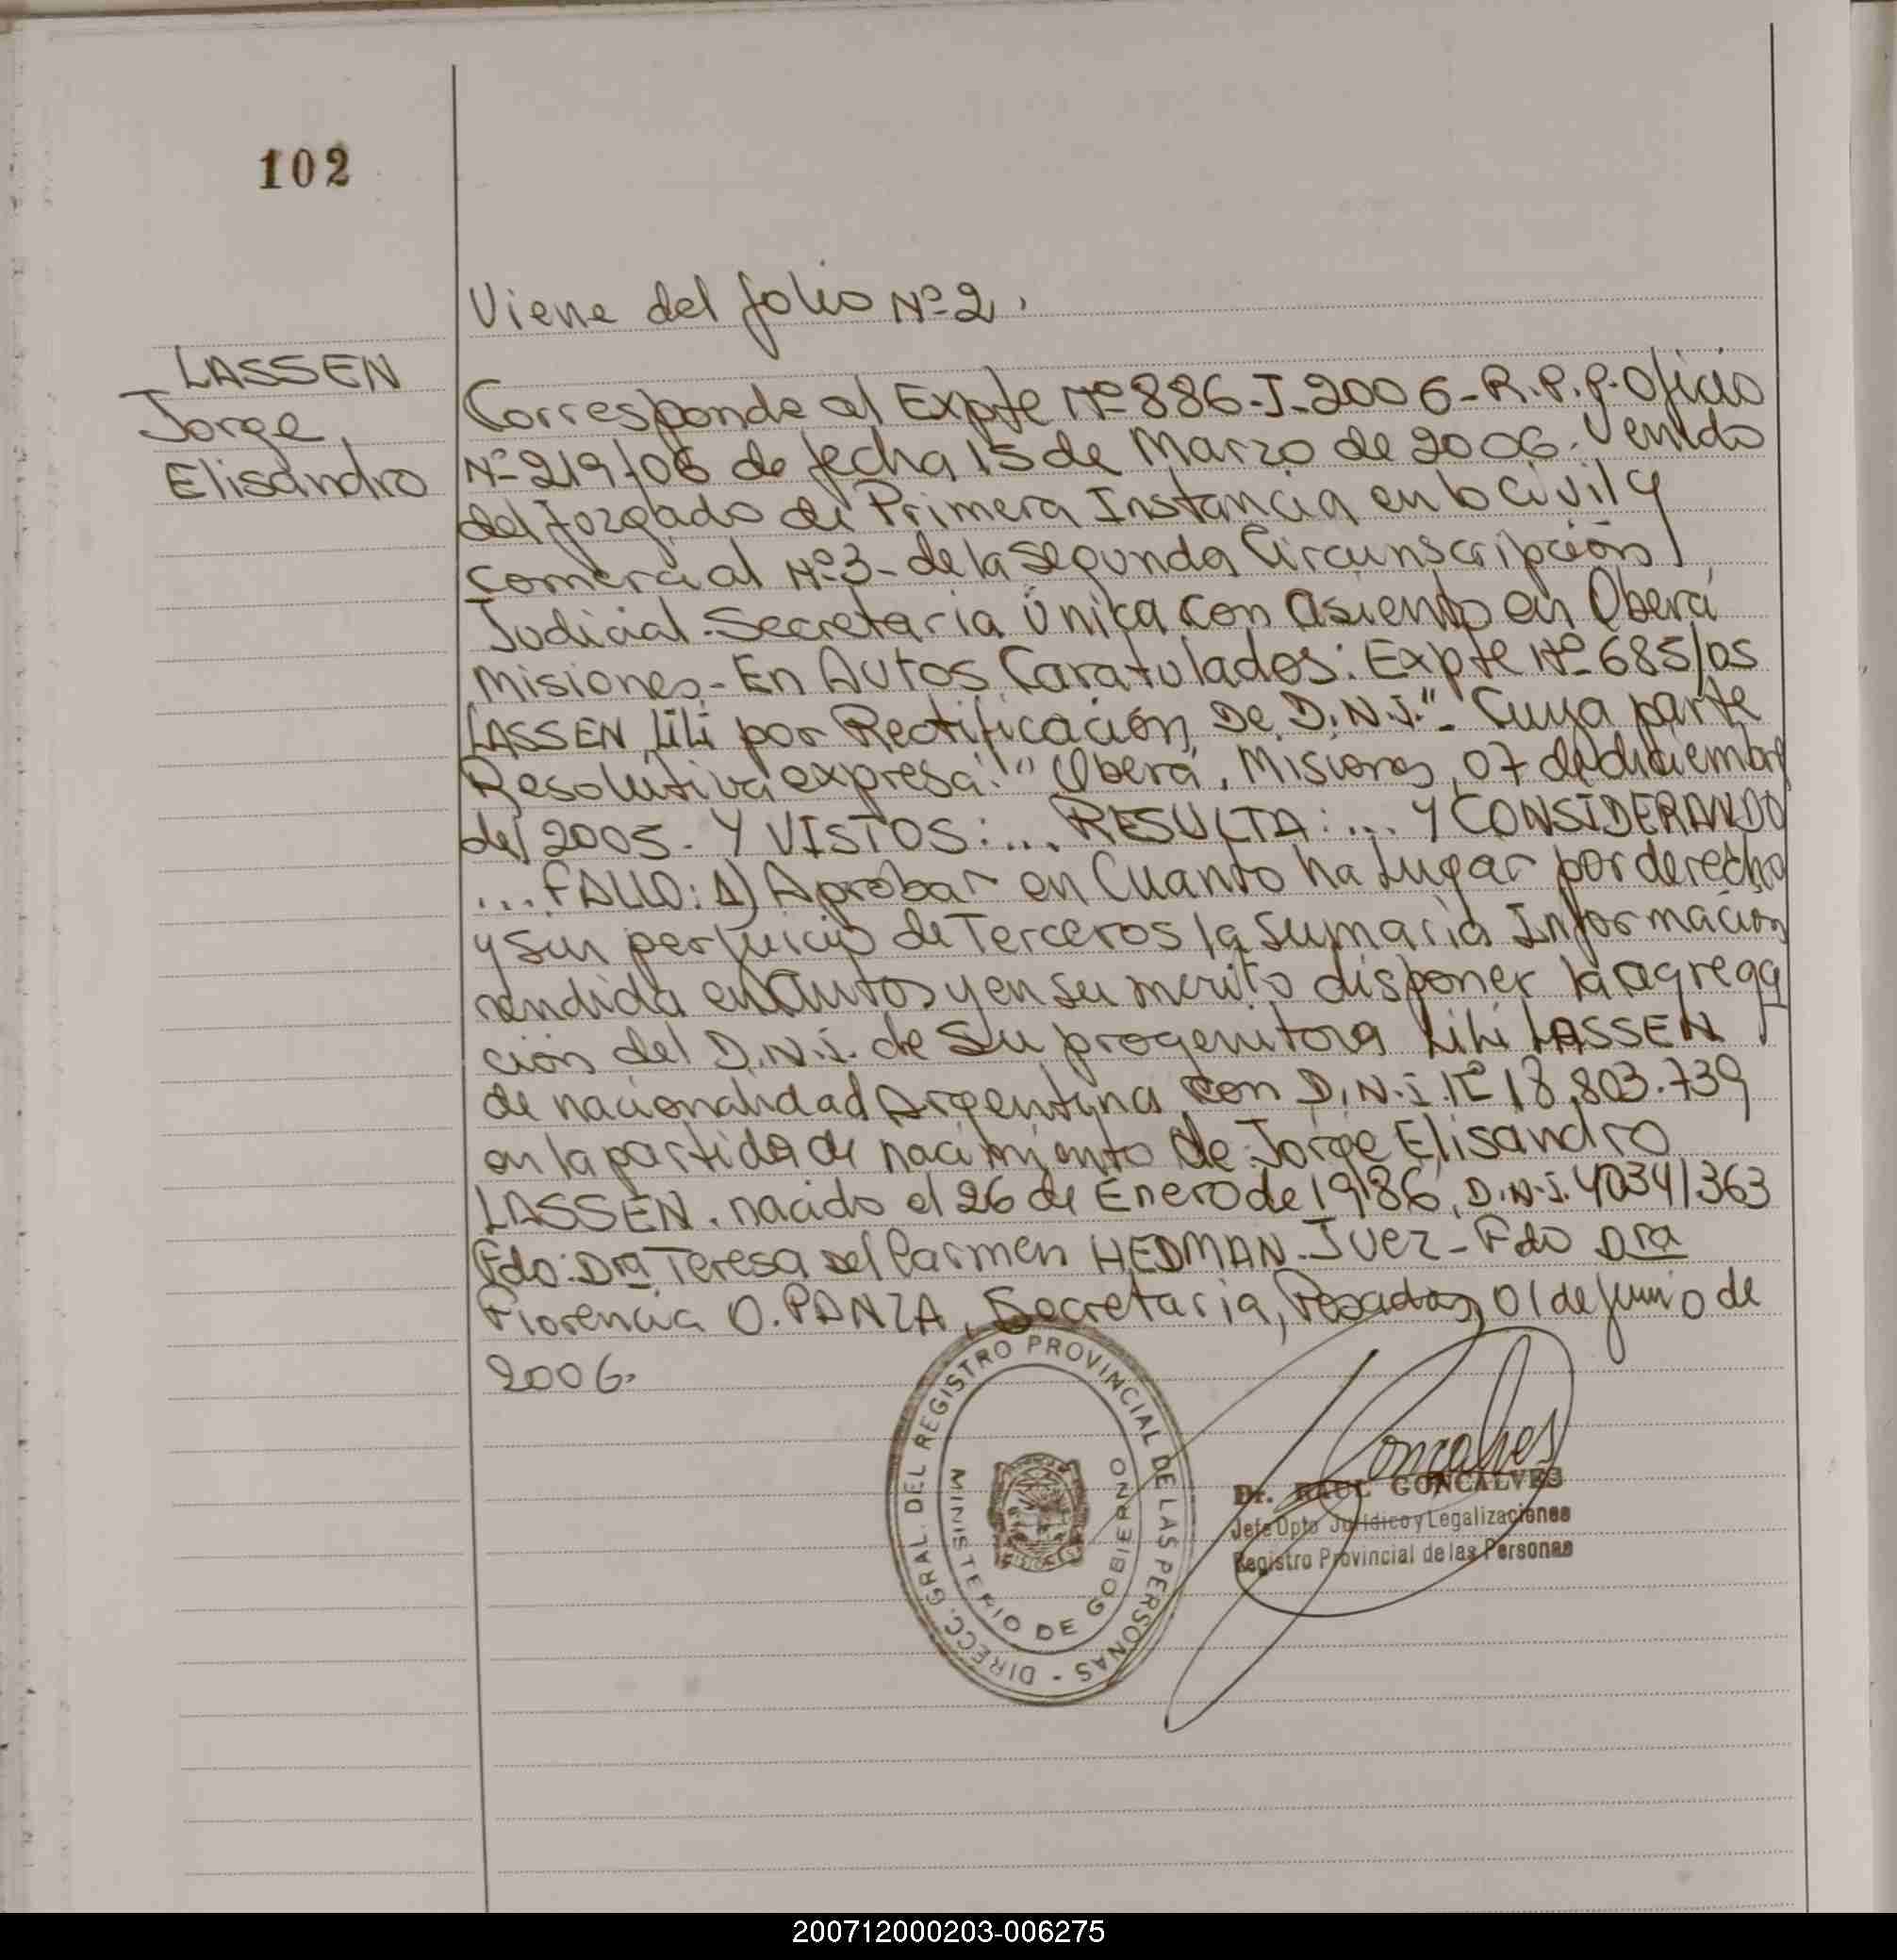 102
Viene del folio Nº 2.
LASSEN
Jorge,
Elisandro
Corresponde al Expte Nº 886-J-2006-R.P.P. Oficio
Nº 219/06 de fecha 15 de Marzo de 2006. Venido
del Juzgado de Primera Instancia en lo Civil y
Comercial Nº 3 - de la Segunda Circunscripción
Judicial. Secretaria Única con asiento en Oberá
Misiones - En Autos Caratulados: Expte Nº 685/05
LASSEN Lili por Rectificación De D.N.i." - Cuya parte
Resolutiva expresa: "Oberá, Misiones, 07 de diciembre
del 2005. Y VISTOS: ... RESULTA: ... Y CONSIDERANDO
... FALLO: 1) Aprobar en Cuanto ha Lugar por derecho
y sin perjuicio de Terceros la Sumaria Información
rendida en autos y en su merito disponer la agrega
ción del D.N.i. de Su progenitora Lili LASSEN
de nacionalidad Argentina con D.N.i. Nº 18.803.739
en la partida de nacimiento de Jorge Elisandro
LASSEN. nacido el 26 de Enero de 1986, D.N.i. 40341363
Fdo: Dra Teresa Del Carmen HEDMAN - Juez - Fdo Dra
Florencia O. PANZA, Secretaria, Posadas, 01 de Junio de
2006.
DIRECC. GRAL. DEL REGISTRO PROVINCIAL DE LAS PERSONAS -
MINISTERIO DE GOBIERNO
Goncalves
Dr. RAUL GONCALVES
Jefe Dpto Jurídico y Legalizaciones
Registro Provincial de las Personas
200712000203-006275